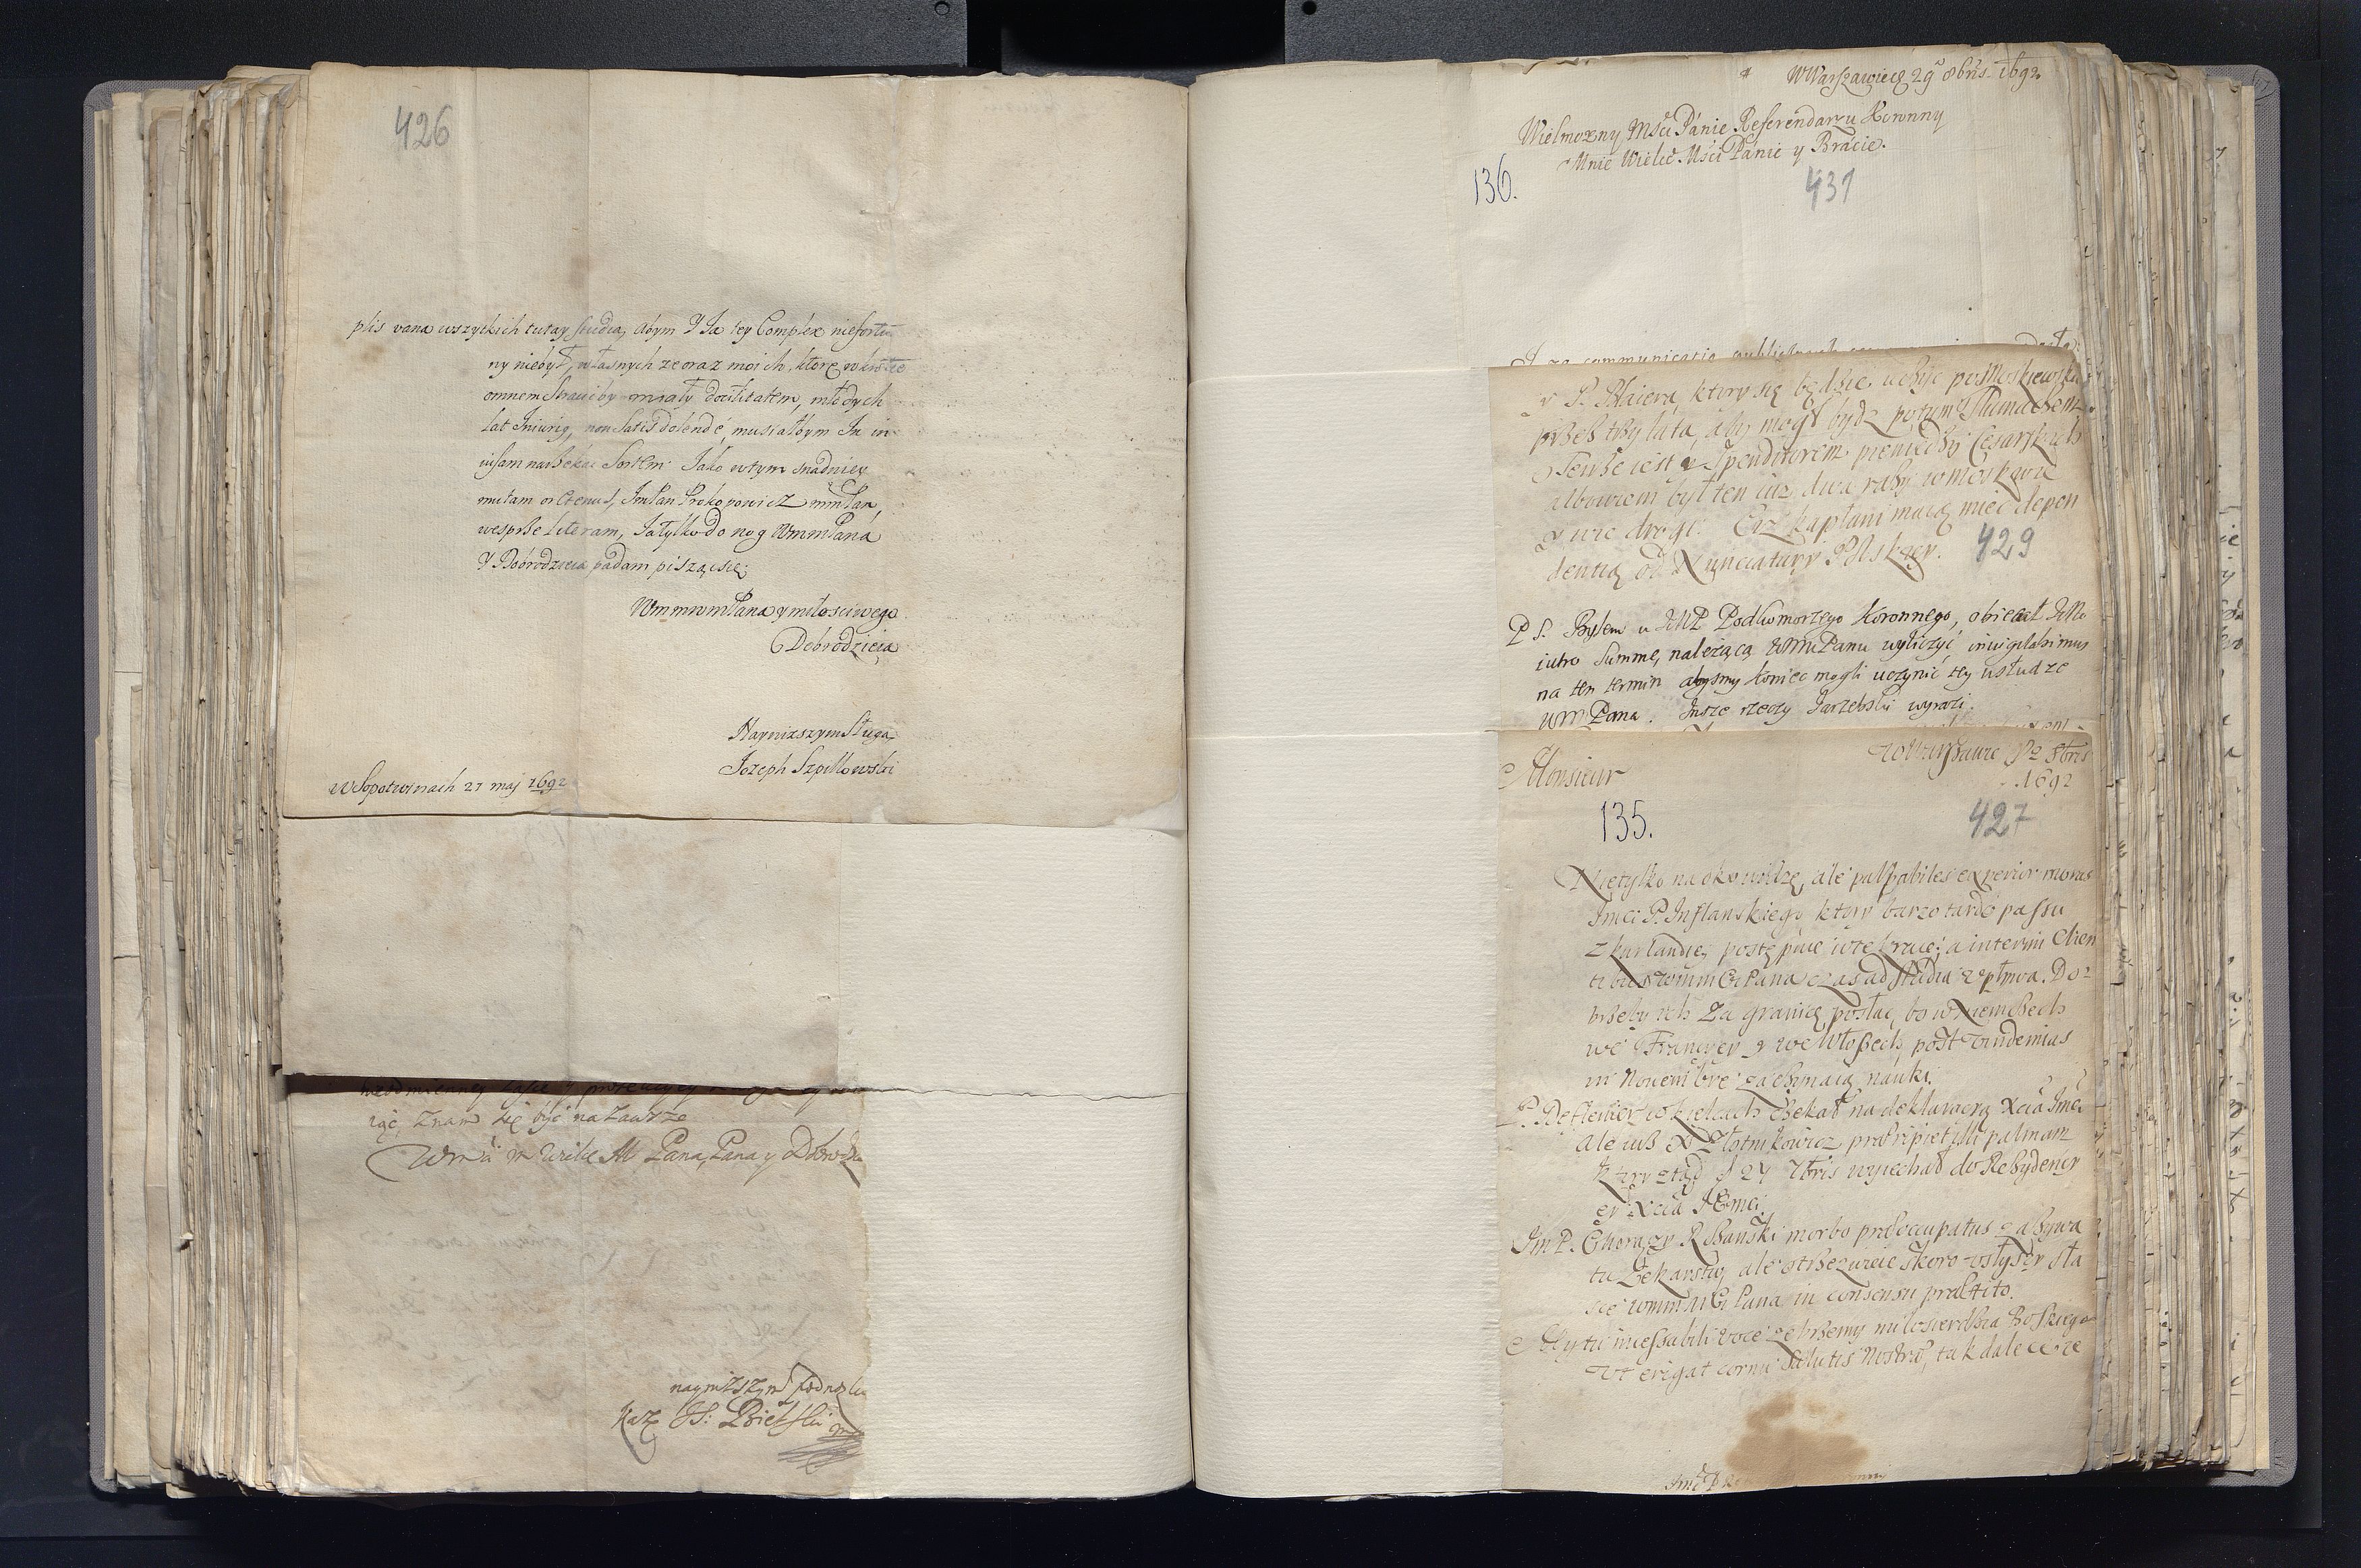 426
plis vana wszytkich tutay studia, abym Y Ja tey Complex niefortu
ny niebył, własnych zeoraz moich, ktore
omnem straciłby miały docilitatem, młodych
lat Iniurię, non satis dolendę, musiałbym In in
visam narzekac Sortem. Jako w tym snadniey
mutam ImPan Prokopowicz mmPan,
wesprze literam, Ja tylko do nog WmmPaná
Y Dobrodzieia padam pisząc się
WmmwmPana y miłosciwego
Dobrodzieia
Naynizszym Sługa
Jozeph Szpilkowski
w Sopotwinach 27 maj 1692
znam się być na zawsze
Wm m Wielce M Pana, Pana y
naynizszym podnozk
Kaz
W Warszawie 29 8bris 1692
Wielmozny Mści Pánie Referendarzu Koronny
Mnie Wielce Mści Pánie y Brácie.
136.
431
y P. Plaiera, ktory się będzie uczyć po Moskiewsku
przez trzy lata, aby mogł bydz potym Tłumaczem
Tenże iest y Spenditorem pieniędzy Cesarskich
albowiem był ten iuż dwa razy w Moskwie
y wie drogi. Ciż kapłani maią miec depen
dentią od Nunciatury Polskiey.
429
PS. Byłem u JMP Podkomorzego Koronnego, obiecał
iutro Summę, należącą WMPanu wyliczyć, invigilabimus
na ten termin abysmy koniec mogli uczynić tey usłudze
WMPana. Insze rzeczy Jarzebski wyrazi.
Monsieur
w Warszawie 8bris
1692
135.
427
Nietylko na oko widzę, ale palpabiles experior moras
Jmci P. Inflanskiego ktory barzo tardo passu
z kurlandiey postępuie a interim Clien
tibus wmmMCiPana czas ad studia upływa. Do
brzeby ich Za granicę posłac, bo w Niemczech
we Francyey y we Włoszech, post vindemias
in Novembre zaczynaią nauki.
P. w kielcach czekał na deklaracyą Xcia Jmci
Ale iusz X Złotnikowicz praeripiet illi palmam
ktory ztąd 27 7bris wyiechał do Rezydency
ey Xcia JEmci.
Jm P. Chorąży morbo praeoccupatus zażywa
tu Lekarstw, ale otrzezwieie skoro usłyszy sta
ie wmmMCi Pana in consensu praestito.
My tu incessabili voce żebrzemy miłosierdzia Boskiego
Vt erigat cornu Salutis Nostrae, tak dalece że